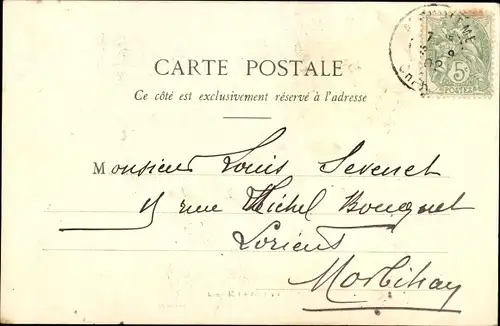 CARTE POSTALE
Ce côté est exclusivement réservé à l'adresse
Monsieur Louis Sevenet
rue Michel Bouquet
Lorient
Morbihan
5c
POSTES